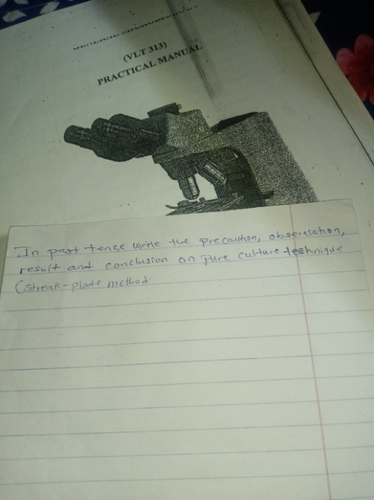 (VLT 313)
PRACTICAL MANUAL
In past tence write the precaution, observation,
result and conclusion on pure culture technique
(streak-plate method.